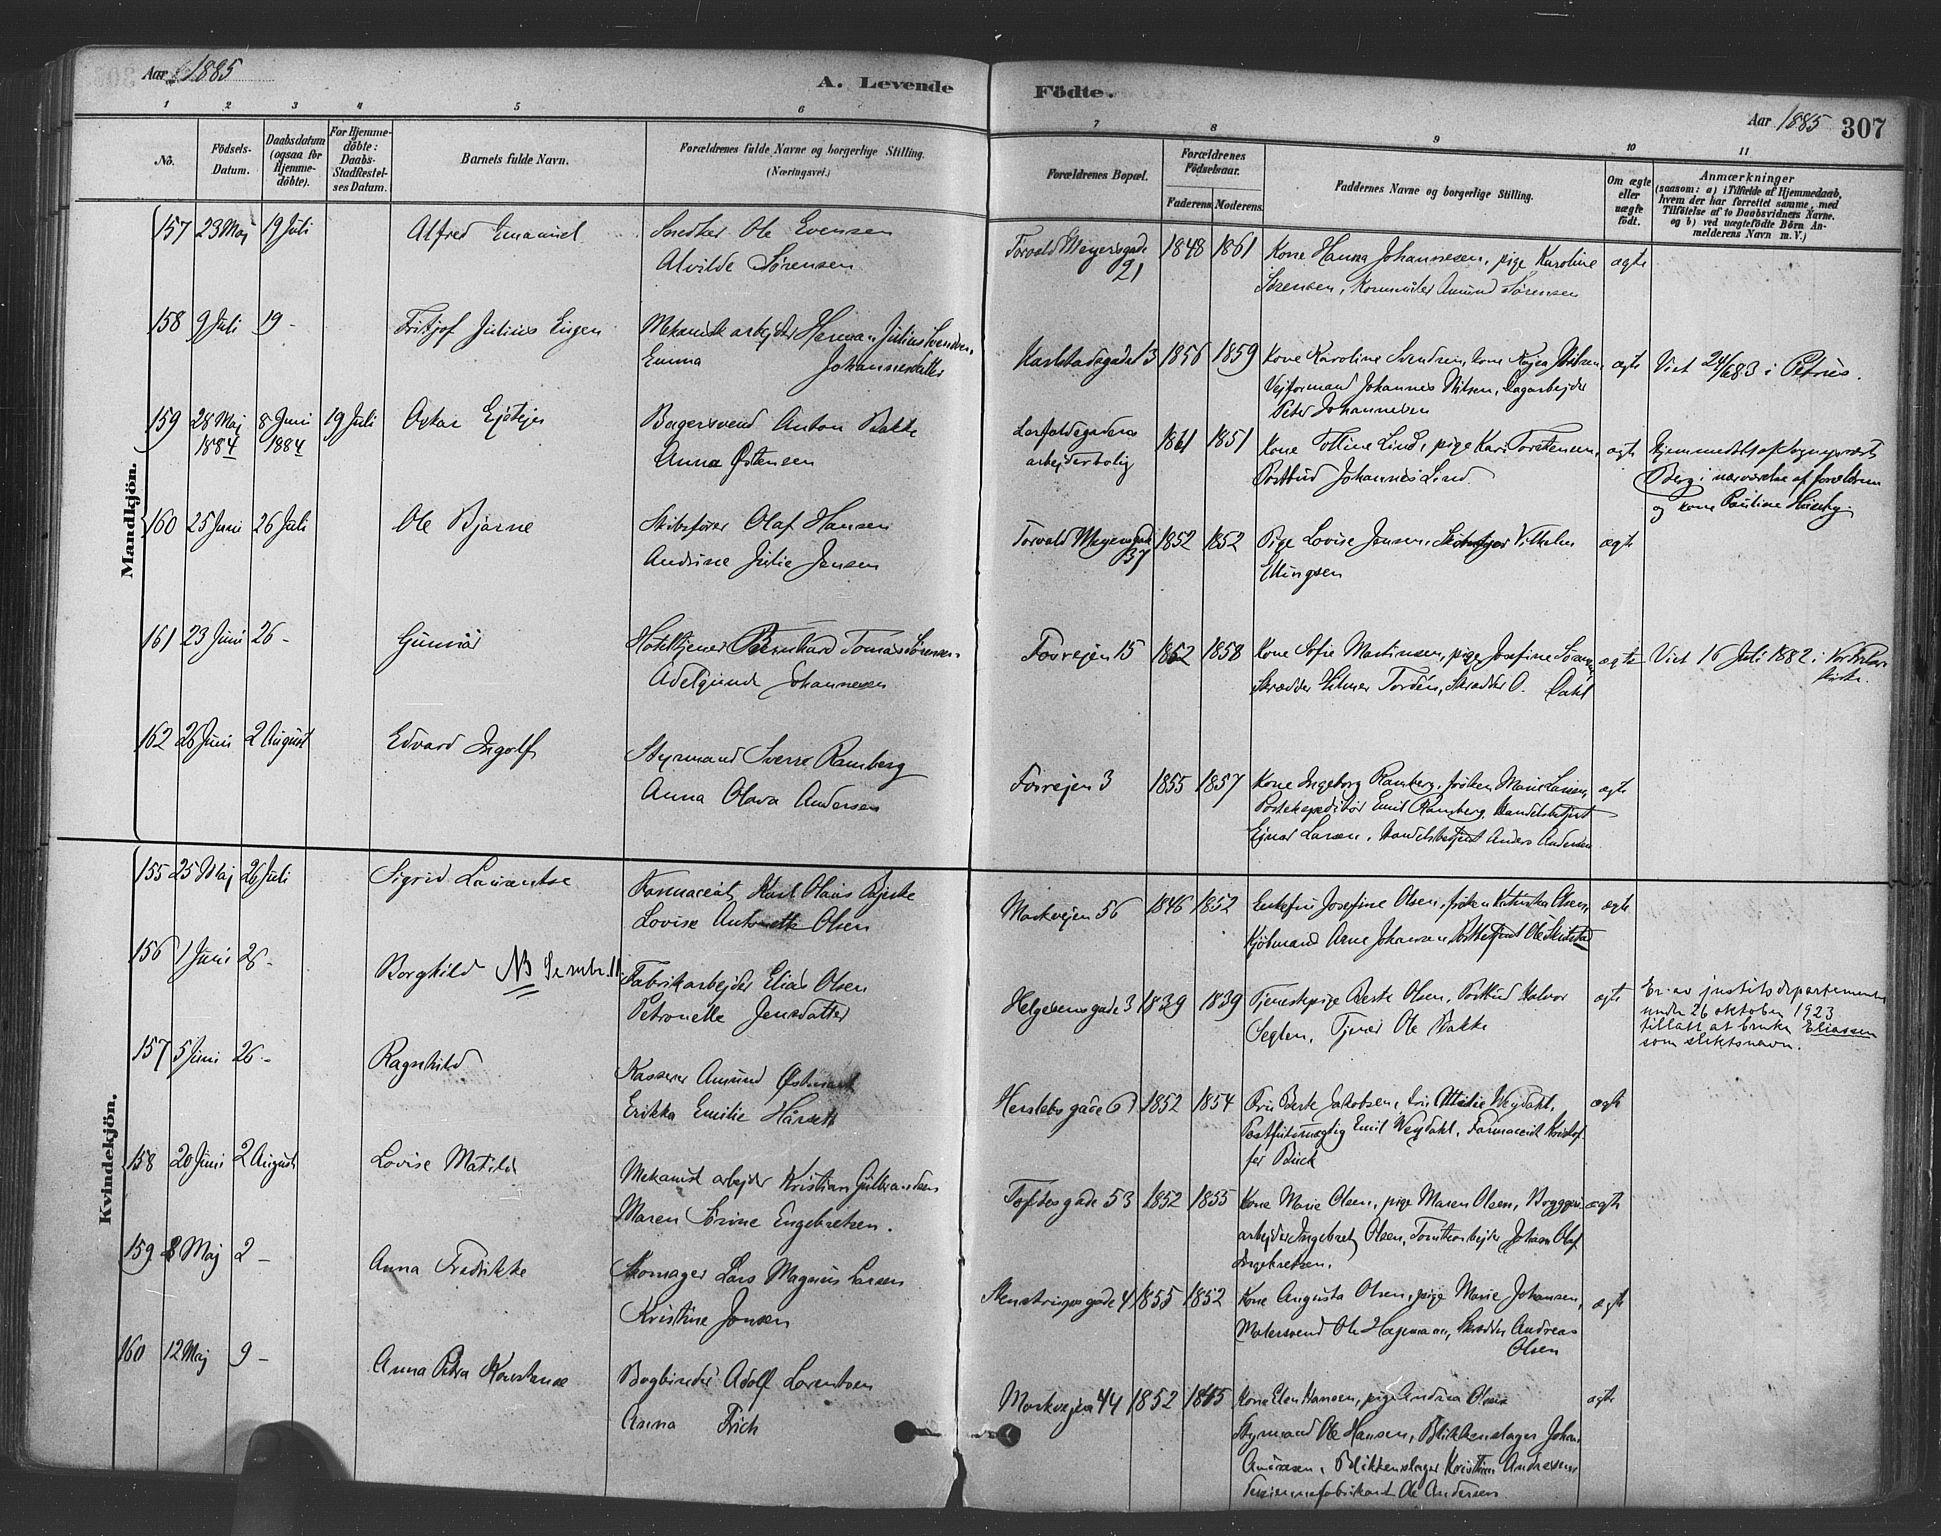 Aar 1885
A. Levende
Födte.
Aar 1885 307
1 2 3 4 5 6 7 8 9 10 11
No.
Födsels-
Datum.
Daabsdatum
(ogsaa for
Hjemme-
döbte).
For Hjemme-
döbte:
Daabs-
Stadfæstel-
ses Datum.
Barnets fulde Navn.
Forældrenes fulde Navne og borgerlige Stilling.
(Næringsvei.)
Forældrenes Bopæl.
Forældrenes
Födselsaar.
Faderens. Moderens.
Faddernes Navne og borgerlige Stilling.
Om ægte
eller
uægte
födt.
Anmærkninger
(saasom: a) i Tilfælde af Hjemmedaab,
hvem der har forrettet samme, med
Tilföielse af to Daabsvidners Navne.
og b) ved uægtefödte Börn An-
melderens Navn m. V.)
Mandkjön.
157 23 Maj 19 Juli Alfred Emanuel Snedker Ole Evensen
Alvilde Sørensen
Torvald Meyersgade
21
1848 1861 Kone Hanna Johannesen, pige Karoline
Sørensen, Amund Sørensen
ægte
158 9 Juli 19 - Fritjof Julius Eugen Mekanisk arbejder Herman Julius Svendsen,
Emma Johannesdatter
Karlstadsgade 13 1856 1859 Kone Karoline Svendsen, kone Nilsen,
Vejformand Johannes Nilsen, Dagarbejder
Peter Johannesen
ægte Viet 24/6 83 i Petrus.
159 28 Maj
1884
8 Juni
1884
19 Juli Oskar Bagersvend Anton Bakke
Anna Østensen
arbejderbolig
1861 1851 Kone Lind, pige Kari Torstensen,
Postbud Johannes Lind.
ægte
Berg i nærværelse af forældrene
og kone Pauline
160 25 Juni 26 Juli Ole Bjarne Skibsfører Olaf Hansen
Andrine Julie Jensen
Torvald Meyersgade
37
1852 1852 Pige Lovise Jensen, Vilhelm
Ellingsen
ægte
161 23 Juni 26 - Gunnar Hoteltjener Bernhard Tomas Sørensen.
Adelgunde Johannesen
Fosvejen 15 1852 1858 Kone Sofie Martinsen, pige Josefine
Skrædder Hilmer Tordén, Skrædder O. Dahl
ægte Viet 16 Juli 1882 i
kirke.
162 26 Juni 2 August Edvard Ingolf Styrmand Sverre Ramberg
Anna Olava Andersen
Fosvejen 3 1855 1857 Kone Ingeborg Ramberg, frøken Marie Larsen,
Postekspeditør Emil Ramberg, Handelsbetjent
Ejnar Larsen, Handelsbetjent Anders Andersen
ægte
Kvindekjön.
155 25 Maj 26 Juli Sigrid Laurentse Farmaceut Karl Olaus Bjerke
Lovise Antonette Olsen
Markvejen 56 1846 1852 Enkefru Josefine Olsen, frøken Olsen,
Kjøbmand Arne Johansen, Postbetjent Ole
ægte
156 1 Juni 26 - Borghild NB Fabrikarbejder Elias Olsen
Petronelle Jensdatter
Helgesensgade 3 1839 1839 Tjenestepige Berte Olsen, Postbud Halvor
Seglen, Tjener Ole Bakke
ægte Er av justitsdepartementet
under 26 oktober 1923
tillatt at bruke Eliassen
som slektsnavn.
157 5 Juni 26 - Ragnhild Kasserer Amund Østmark
Erikka Emilie
Herslebs gade 6 1852 1854 Fru Berte Jakobsen, fru Weydahl,
Postfuldmægtig Emil Weydahl, Farmaceut Kristof
fer Buck
ægte
158 20 Juni 2 August Lovise Matilde Mekanisk arbejder Kristian Gulbrandsen
Maren Sørine Engebretsen.
Toftesgade 53 1852 1855 Kone Marie Olsen, pige Maren Olsen, Bryggeri
arbejder Ingebret Olsen, Tomtearbejder Johan Olaf
Ingebretsen.
ægte
159 8 Maj 2 - Anna Fredrikke Skomager Lars Magnus Larsen
Kristine Jonsen
Stenstrupsgade 4 1855 1852 Kone Augusta Olsen, pige Marie Johansen,
Malersvend Ole Hagemann, Skrædder Andreas
Olsen
ægte
160 12 Maj 9 - Anna Petra Konstanse Bogbinder Adolf Lorentsen
Anna Frich
Markvejen 44 1852 Kone Elen Hansen, pige Andrea Olsen
Styrmand Ole Hansen, Blikkenslager Johan
Andresen, Blikkenslager Kristian Andresen
Ole Andersen
ægte